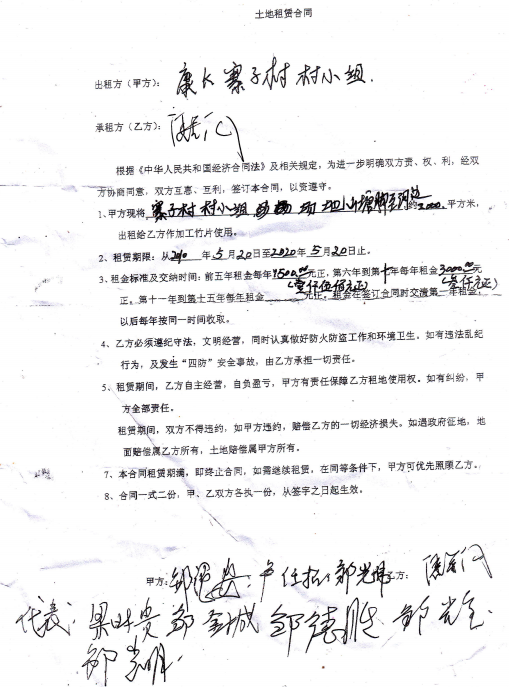 土地租赁合同
出租方（甲方）： 寨子村 村小组.
承租方（乙方）：
根据《中华人民共和国经济合同法》及相关规定，为进一步明确双方责、权、利，经双
方协商同意，双方互惠、互利，签订本合同，以资遵守。
1、甲方现将 寨子村 村小组 约2000平方米，
出租给乙方作加工竹片使用。
2、租赁期限：从2010年5月20日至2020年5月20日止。
3、租金标准及交纳时间：前五年租金每年1500.00元正，第六年到第十年每年租金3000.00元
(壹仟伍佰元正) (叁仟元正)
正。第十一年到第十五年每年租金 元正。租金在签订合同时交清第一年租金，
以后每年按同一时间收取。
4、乙方必须遵纪守法，文明经营，同时认真做好防火防盗工作和环境卫生。如有违法乱纪
行为，及发生“四防”安全事故，由乙方承担一切责任。
5、租赁期间，乙方自主经营，自负盈亏，甲方有责任保障乙方租地使用权。如有纠纷，甲
方全部责任。
租赁期间，双方不得违约，如甲方违约，赔偿乙方的一切经济损失。如遇政府征地，地
面赔偿属乙方所有，土地赔偿属甲方所有。
7、本合同租赁期满，即终止合同，如需继续租赁，在同等条件下，甲方可优先照顾乙方。
8、合同一式二份，甲、乙双方各执一份，从签字之日起生效。
甲方： 邹光 乙方：
代表： 梁 贵 邹金城 邹德胜 邹光全
邹光明